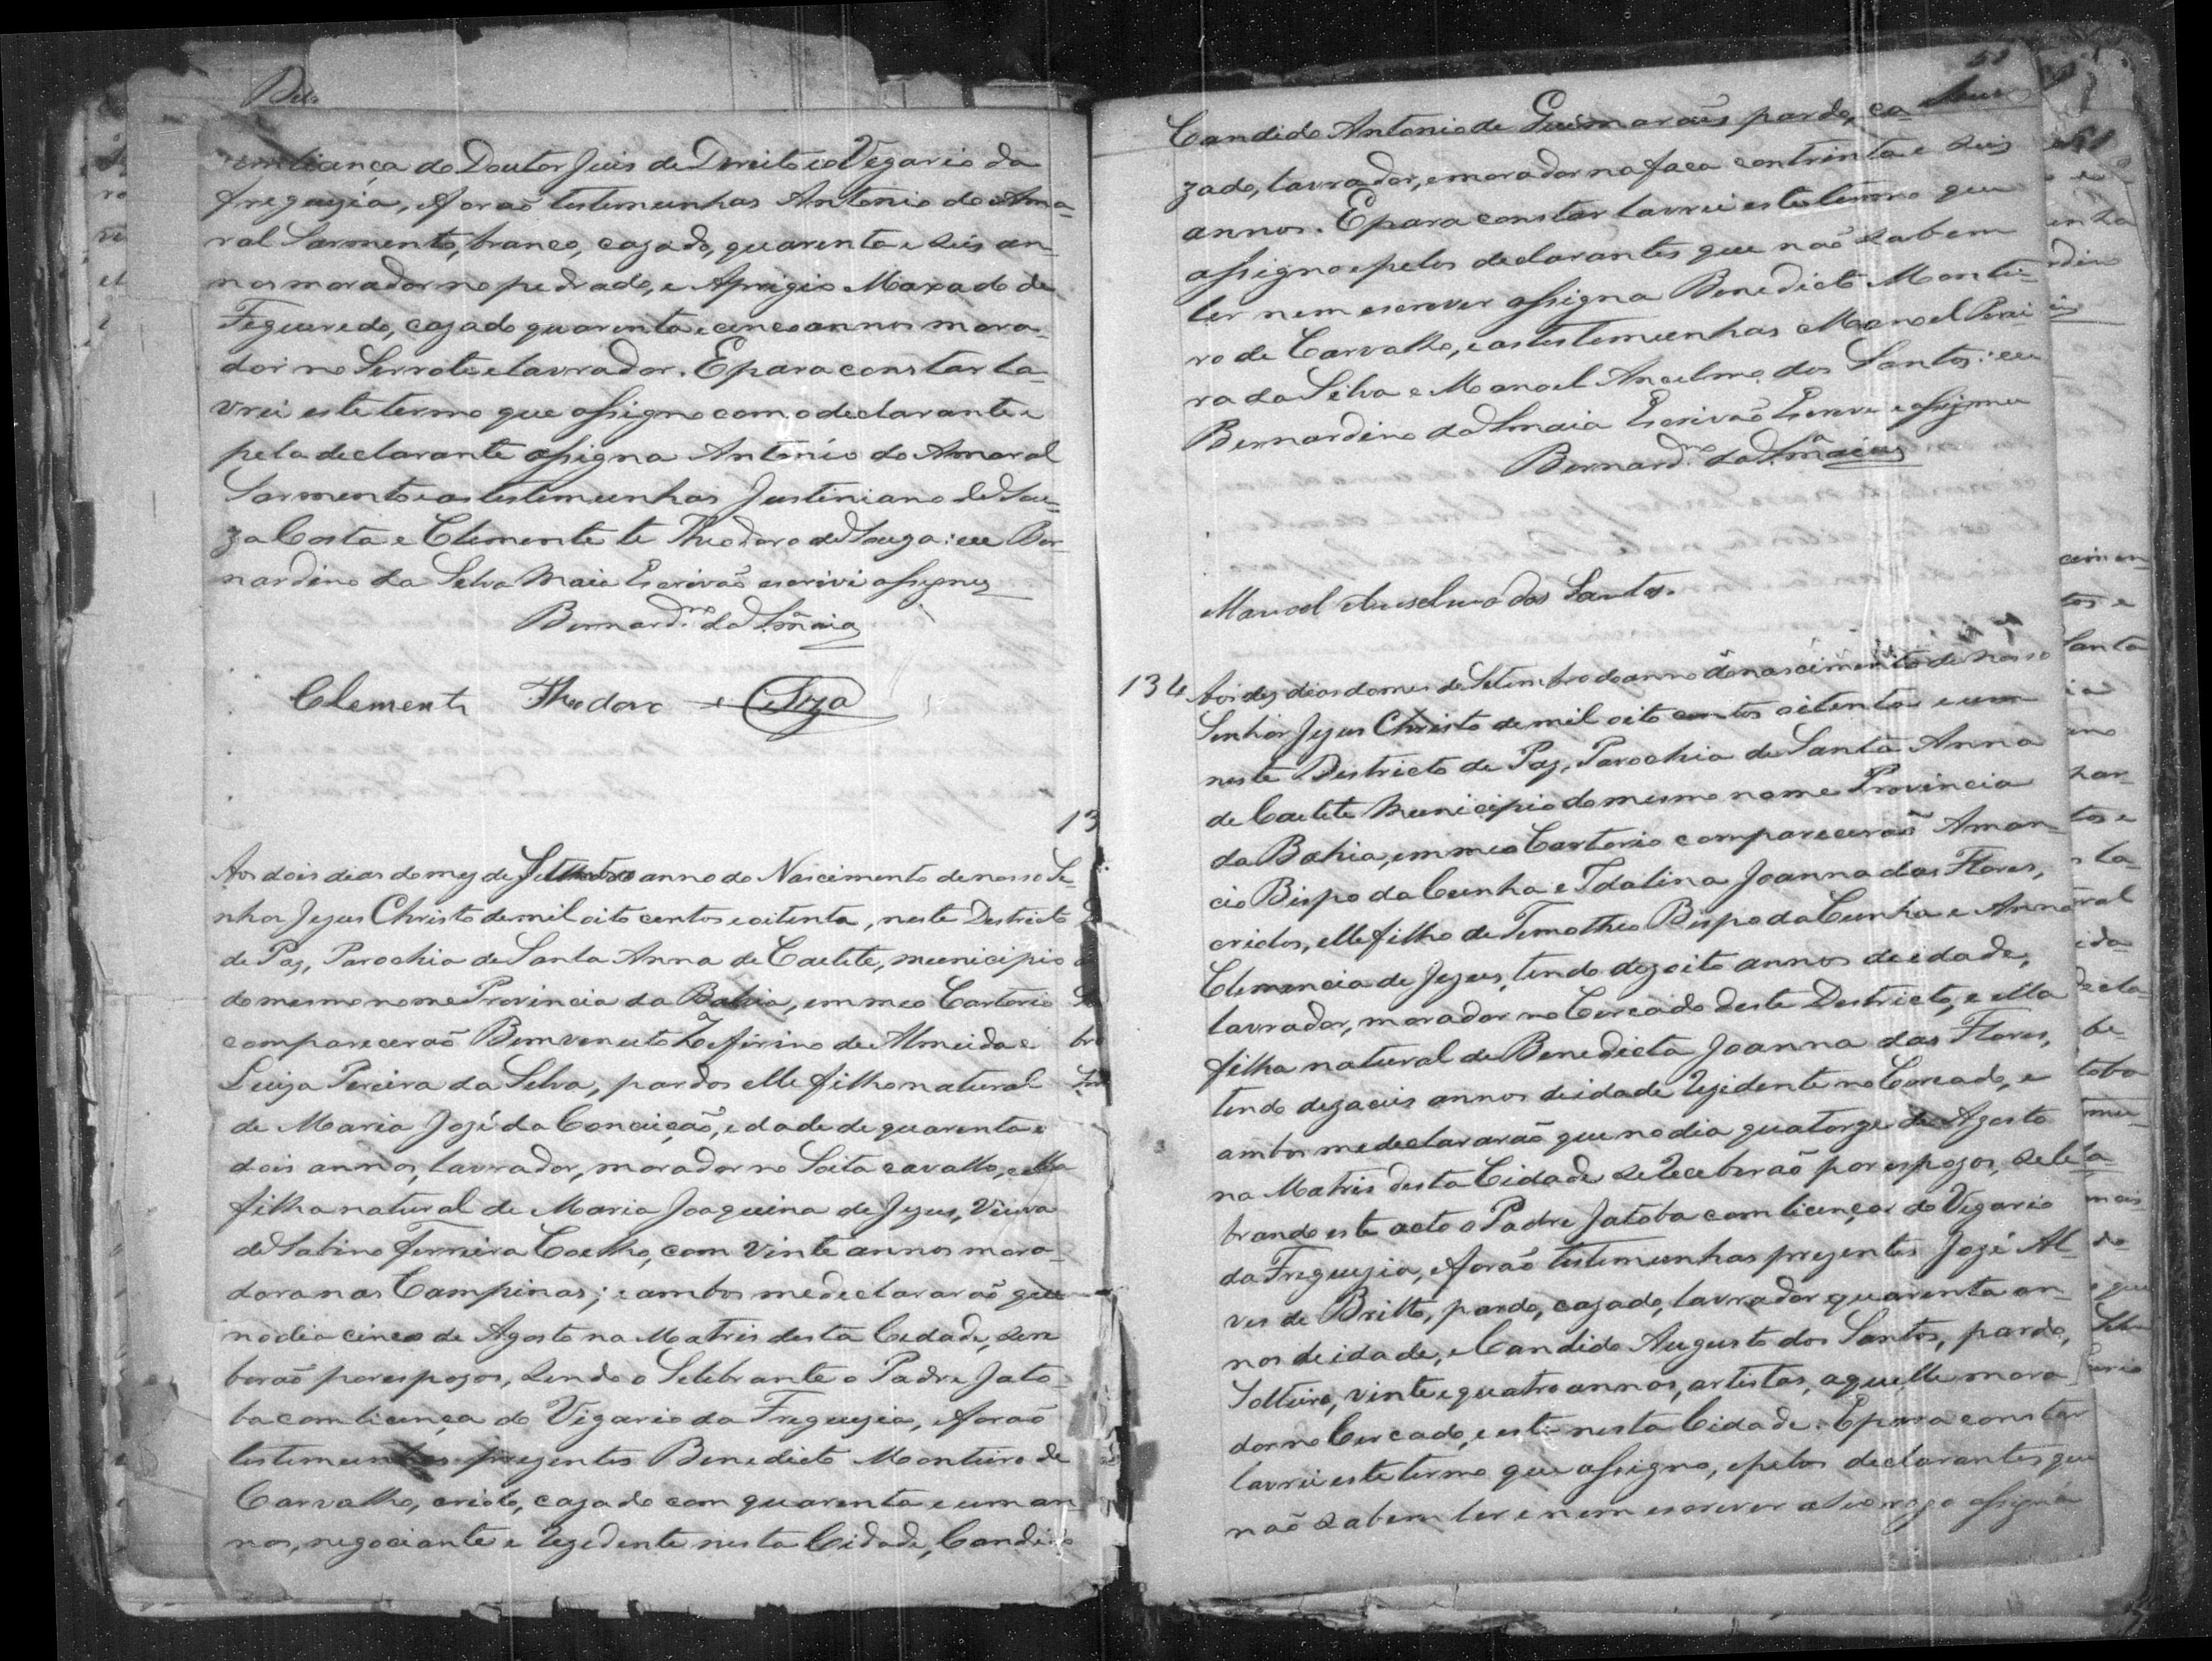 licença do Doutor Juis de Direito e o Vegario da
freguezia, e forão testemunhas Antonio do Ama-
ral Sarmento, branco, cazado, quarenta e seis an-
nos morador no pedrado, e Aprigio Maxado de
Fegueredo, cazado quarenta e cinco annos mora-
dor no Serrote e lavrador. E para constar la-
vrei este termo que assigno com o declarante e
pela declarante assigna Antonio do Amaral
Sarmento e as testemunhas Justiniano de Sou-
za Costa e Clemente te Theodoro de Souza: eu Ber-
nardino da Selva Maia Escrivão escrivi assigney
Bernardno da Sa Maia
Clemente Theodoro
13
Aos dois dias do mez de Setembro anno do Nascimento de nosso Se-
nhor Jezus Christo de mil oito centos e oitenta, neste Destricto
de Paz, Parochia de Santa Anna de Caetete, municipio
do mesmo nome Provincia da Bahia, em meo Cartorio
comparecerão Bemvenuto Zeferino de Almeida e
Luiza Pereira da Selva, pardos elle filho natural
de Maria Jozé da Conceição, edade de quarenta e
dois annos, lavrador, morador no Soita cavallo, e ella
filha natural de Maria Joaquina de Jezus, Viuva
de Sabino Ferreira Coelho, com vinte annos mora-
dora nas Campinas; e ambos me declararão que
no dia cinco de Agosto na Matris desta Cidade, se re
berão por espozos, sendo o Selebrante o Padre Jato-
ba com licença do Vigario da Freguezia, e forão
testemunhas prezentes Benedicto Monteiro de
Carvalho, criolo, cazado com quarenta e um an
nos, negociante e rezedente nesta Cidade, Candido
Candido Antonio de Guimarães pardo, ca-
zado, lavrador, e morador na faca com trinta e seis
annos. E para constar lavrei este termo que
assigno e pelos declarantes que não sabem
ler nem escrever assigna Benedicto Montei-
ro de Carvalho, e as testemunhas Manoel Perei
ra da Selva e Manoel Ancelmo dos Santos: eu
Bernardino da Sa Maia Escrivão Escrevi e assigney
Bernardno da Sa Maia
Manoel Anselmo dos Santos.
134 Aos dez dias do mes de Setembro do anno do nascimento de nosso
Senhor Jezus Christo de mil oito centos oitenta e um
neste Destricto de Paz, Parochia de Santa Anna
de Caetete Municipio do mesmo nome Provincia
da Bahia, em meo Cartorio comparecerão Aman-
cio Bispo da Cunha e Idalina Joanna das Flores,
criolos, elle filho de Timotheo Bispo da Cunha e Anna
Clemencia de Jezus, tendo dezoito annos de idade,
lavrador, morador no Cercado deste Destricto, e ella
filha natural de Benedicta Joanna das Flores,
tendo dezaceis annos de idade rezidente no Cercado, e
ambos me declararão que no dia quatorze de Agosto
na Matris desta Cidade se receberão por espozos, sele-
brando este acto o Padre Jatoba com licença do Vegario
da Freguezia, e forão testemunhas prezentes Jozé Al-
ves de Britto, pardo, cazado, lavrador quarenta an-
nos de idade, e Candido Augusto dos Santos, pardo,
Solteiro, vinte e quatro annos, artistas, aquelle mora
dor no Cercado, e este nesta Cidade. E para constar
lavrei este termo que assigno, e pelos declarantes que
não sabem ler e nem escrever a seo rogo assigna